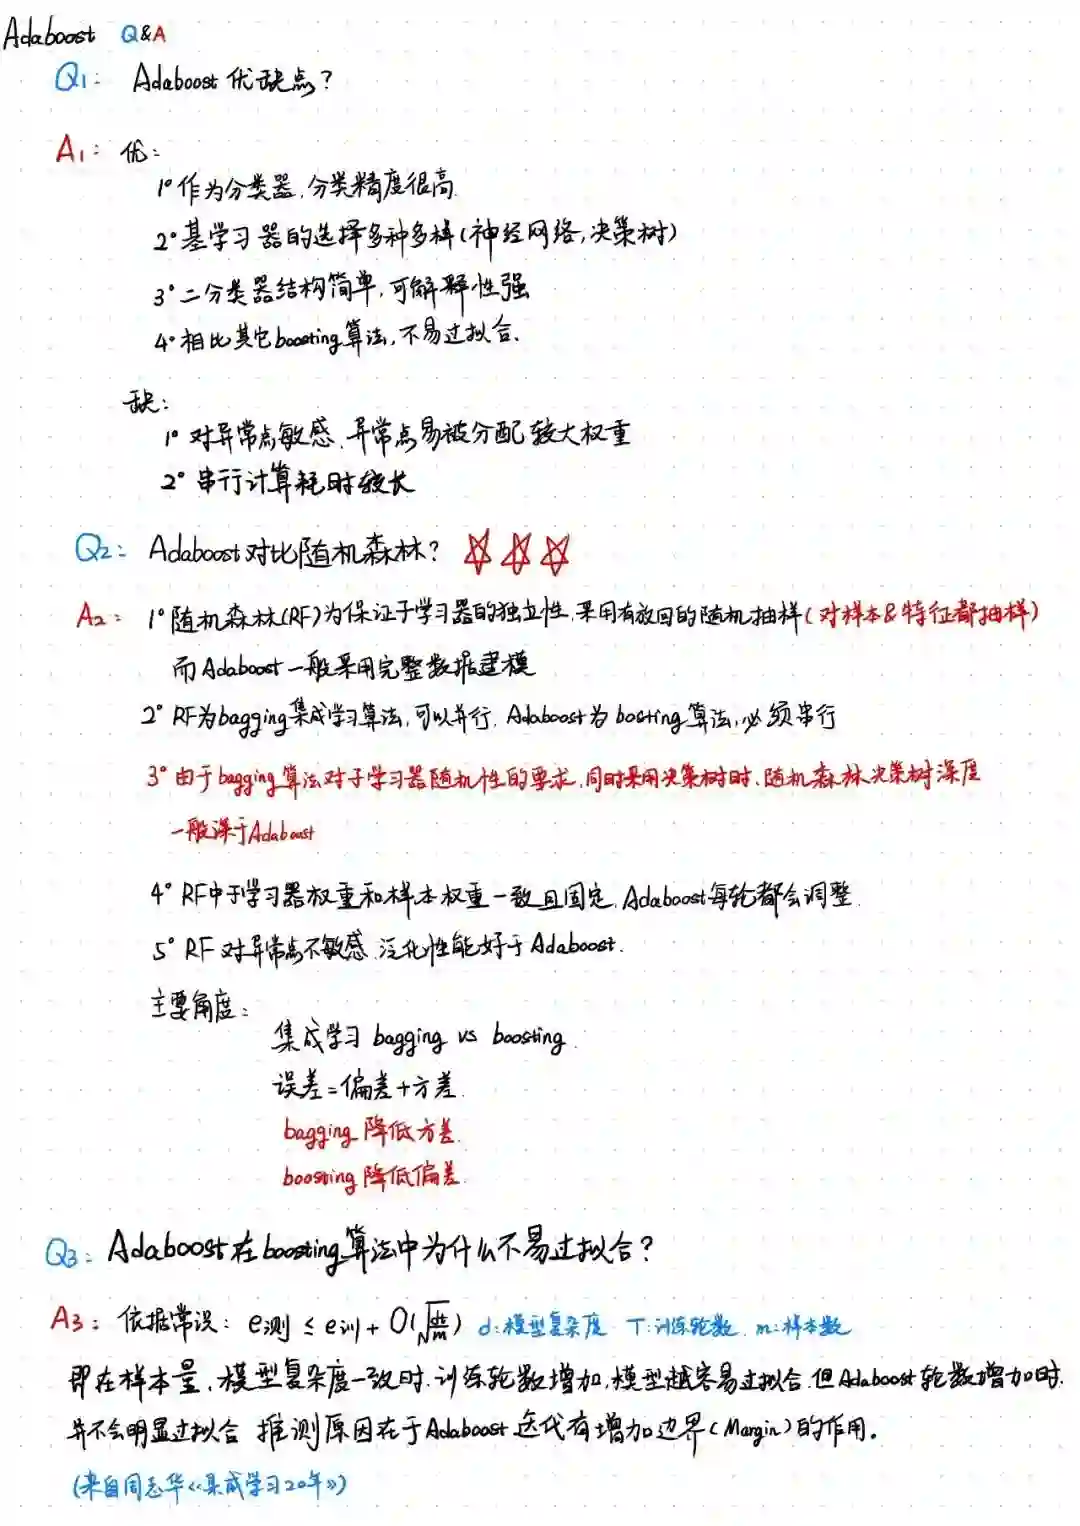 Adaboost Q&A
Q1: Adaboost优缺点?
A1: 优:
1° 作为分类器,分类精度很高.
2° 基学习器的选择多种多样(神经网络,决策树)
3° 二分类器结构简单,可解释性强
4° 相比其它boosting算法,不易过拟合.
缺:
1° 对异常点敏感,异常点易被分配较大权重
2° 串行计算耗时较长
Q2: Adaboost对比随机森林? ☆☆☆
A2: 1° 随机森林(RF)为保证子学习器的独立性,采用有放回的随机抽样(对样本&特征都抽样)
而Adaboost一般采用完整数据建模
2° RF为bagging集成学习算法,可以并行, Adaboost为bosting算法,必须串行
3° 由于bagging算法对子学习器随机性的要求,同时采用决策树时,随机森林决策树深度
一般深于Adaboost
4° RF中子学习器权重和样本权重一致且固定,Adaboost每轮都会调整.
5° RF对异常点不敏感,泛化性能好于Adaboost.
主要角度:
集成学习 bagging vs boosting.
误差=偏差+方差.
bagging 降低方差.
boosting 降低偏差.
Q3: Adaboost在boosting算法中为什么不易过拟合?
A3: 依据常识: e测 ≤ e训 + O(√(dt/m)) d:模型复杂度 T:训练轮数. m:样本数
即在样本量,模型复杂度一致时,训练轮数增加,模型越容易过拟合,但Adaboost轮数增加时,
并不会明显过拟合 推测原因在于Adaboost迭代有增加边界(Margin)的作用.
(来自周志华《集成学习20年》)